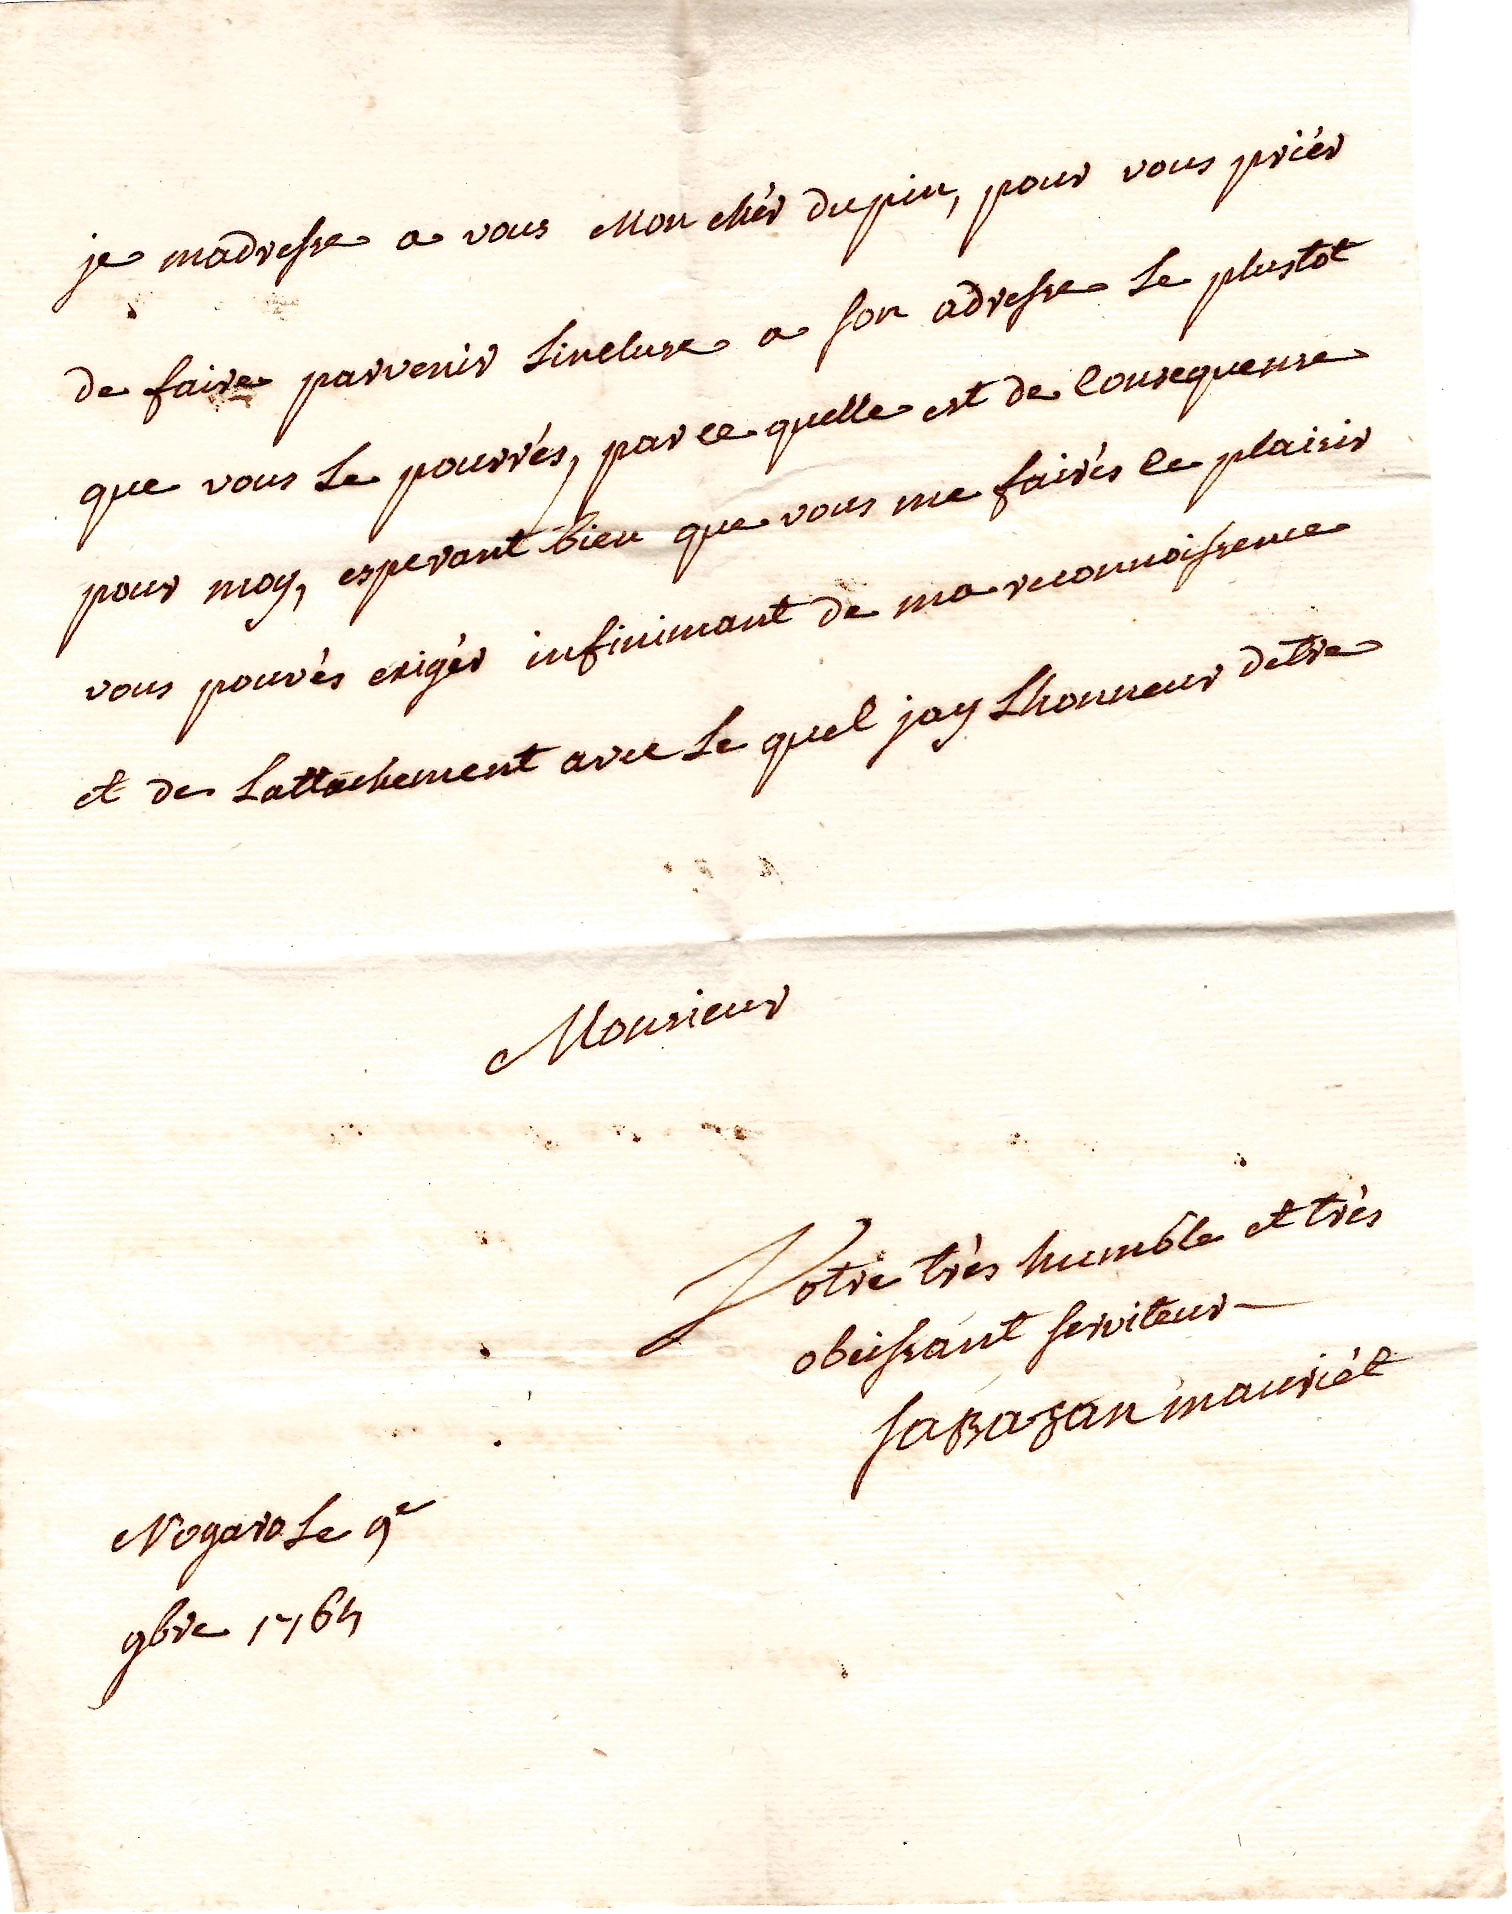 je madresse a vous Mon chér dupin, pour vous priér
de faire parvenir Lincluse a son adresse Le plustot
que vous Le pourrés, par ce quelle est de Consequense
pour moy, esperant bien que vous me fairés le plaisir
vous pouvés exigér infinimant de ma reconnoissence
et de Lattachement avec Le quel jay Lhonneur detre
Monsieur
Votre trés humble et trés
obeissant serviteur
Nogaro Le 9e
9bre 1764